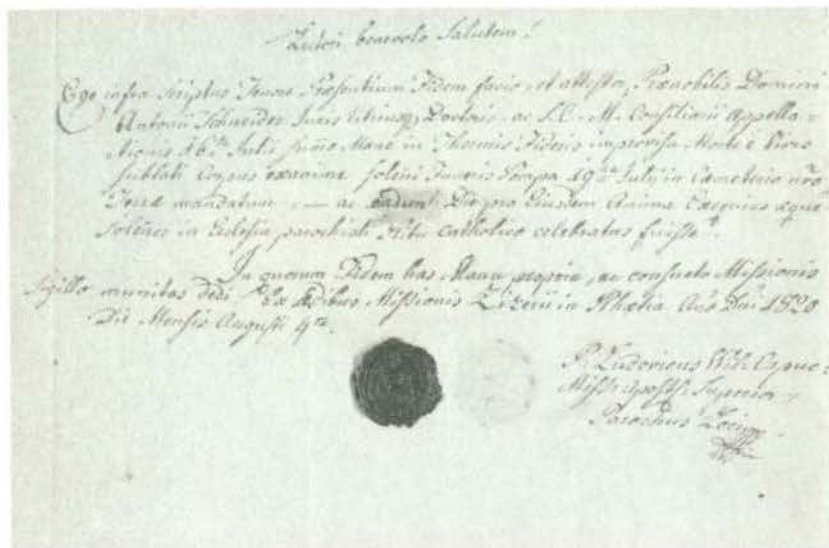 Lectori benevolo Salutem!
Ego infra Scriptus Tenore Praesentium Fidem facio et attestor, Praenobilis Domini
Antonii Schneider Juris Utriusq Doctoris ac S.C. M. Consiliarii Appella
tionis 16ta Julii Mane in Thermis Fideris improvisa Morte e Vivis
sublati Corpus exanime solemni Funeris Pompa 19na Julii in Cameterio nro
Terrae mandatum, — ac eadem Die pro Ejusdem Anima Exequias aeque
Solenes in Eclesia parochiali Ritu Catholico celebratas fuisse.
In quorum Fidem has Manu propria, ac consueto Missionis
Sigillo munitas Dedi Ex Aedibus Missionis Zizerii in Rhaetia Ano Dni 1820
Die Mensis Augusti 4ta.
P. Ludovicus Capuc:
Miss: Apost: Superior
Parochus Loci